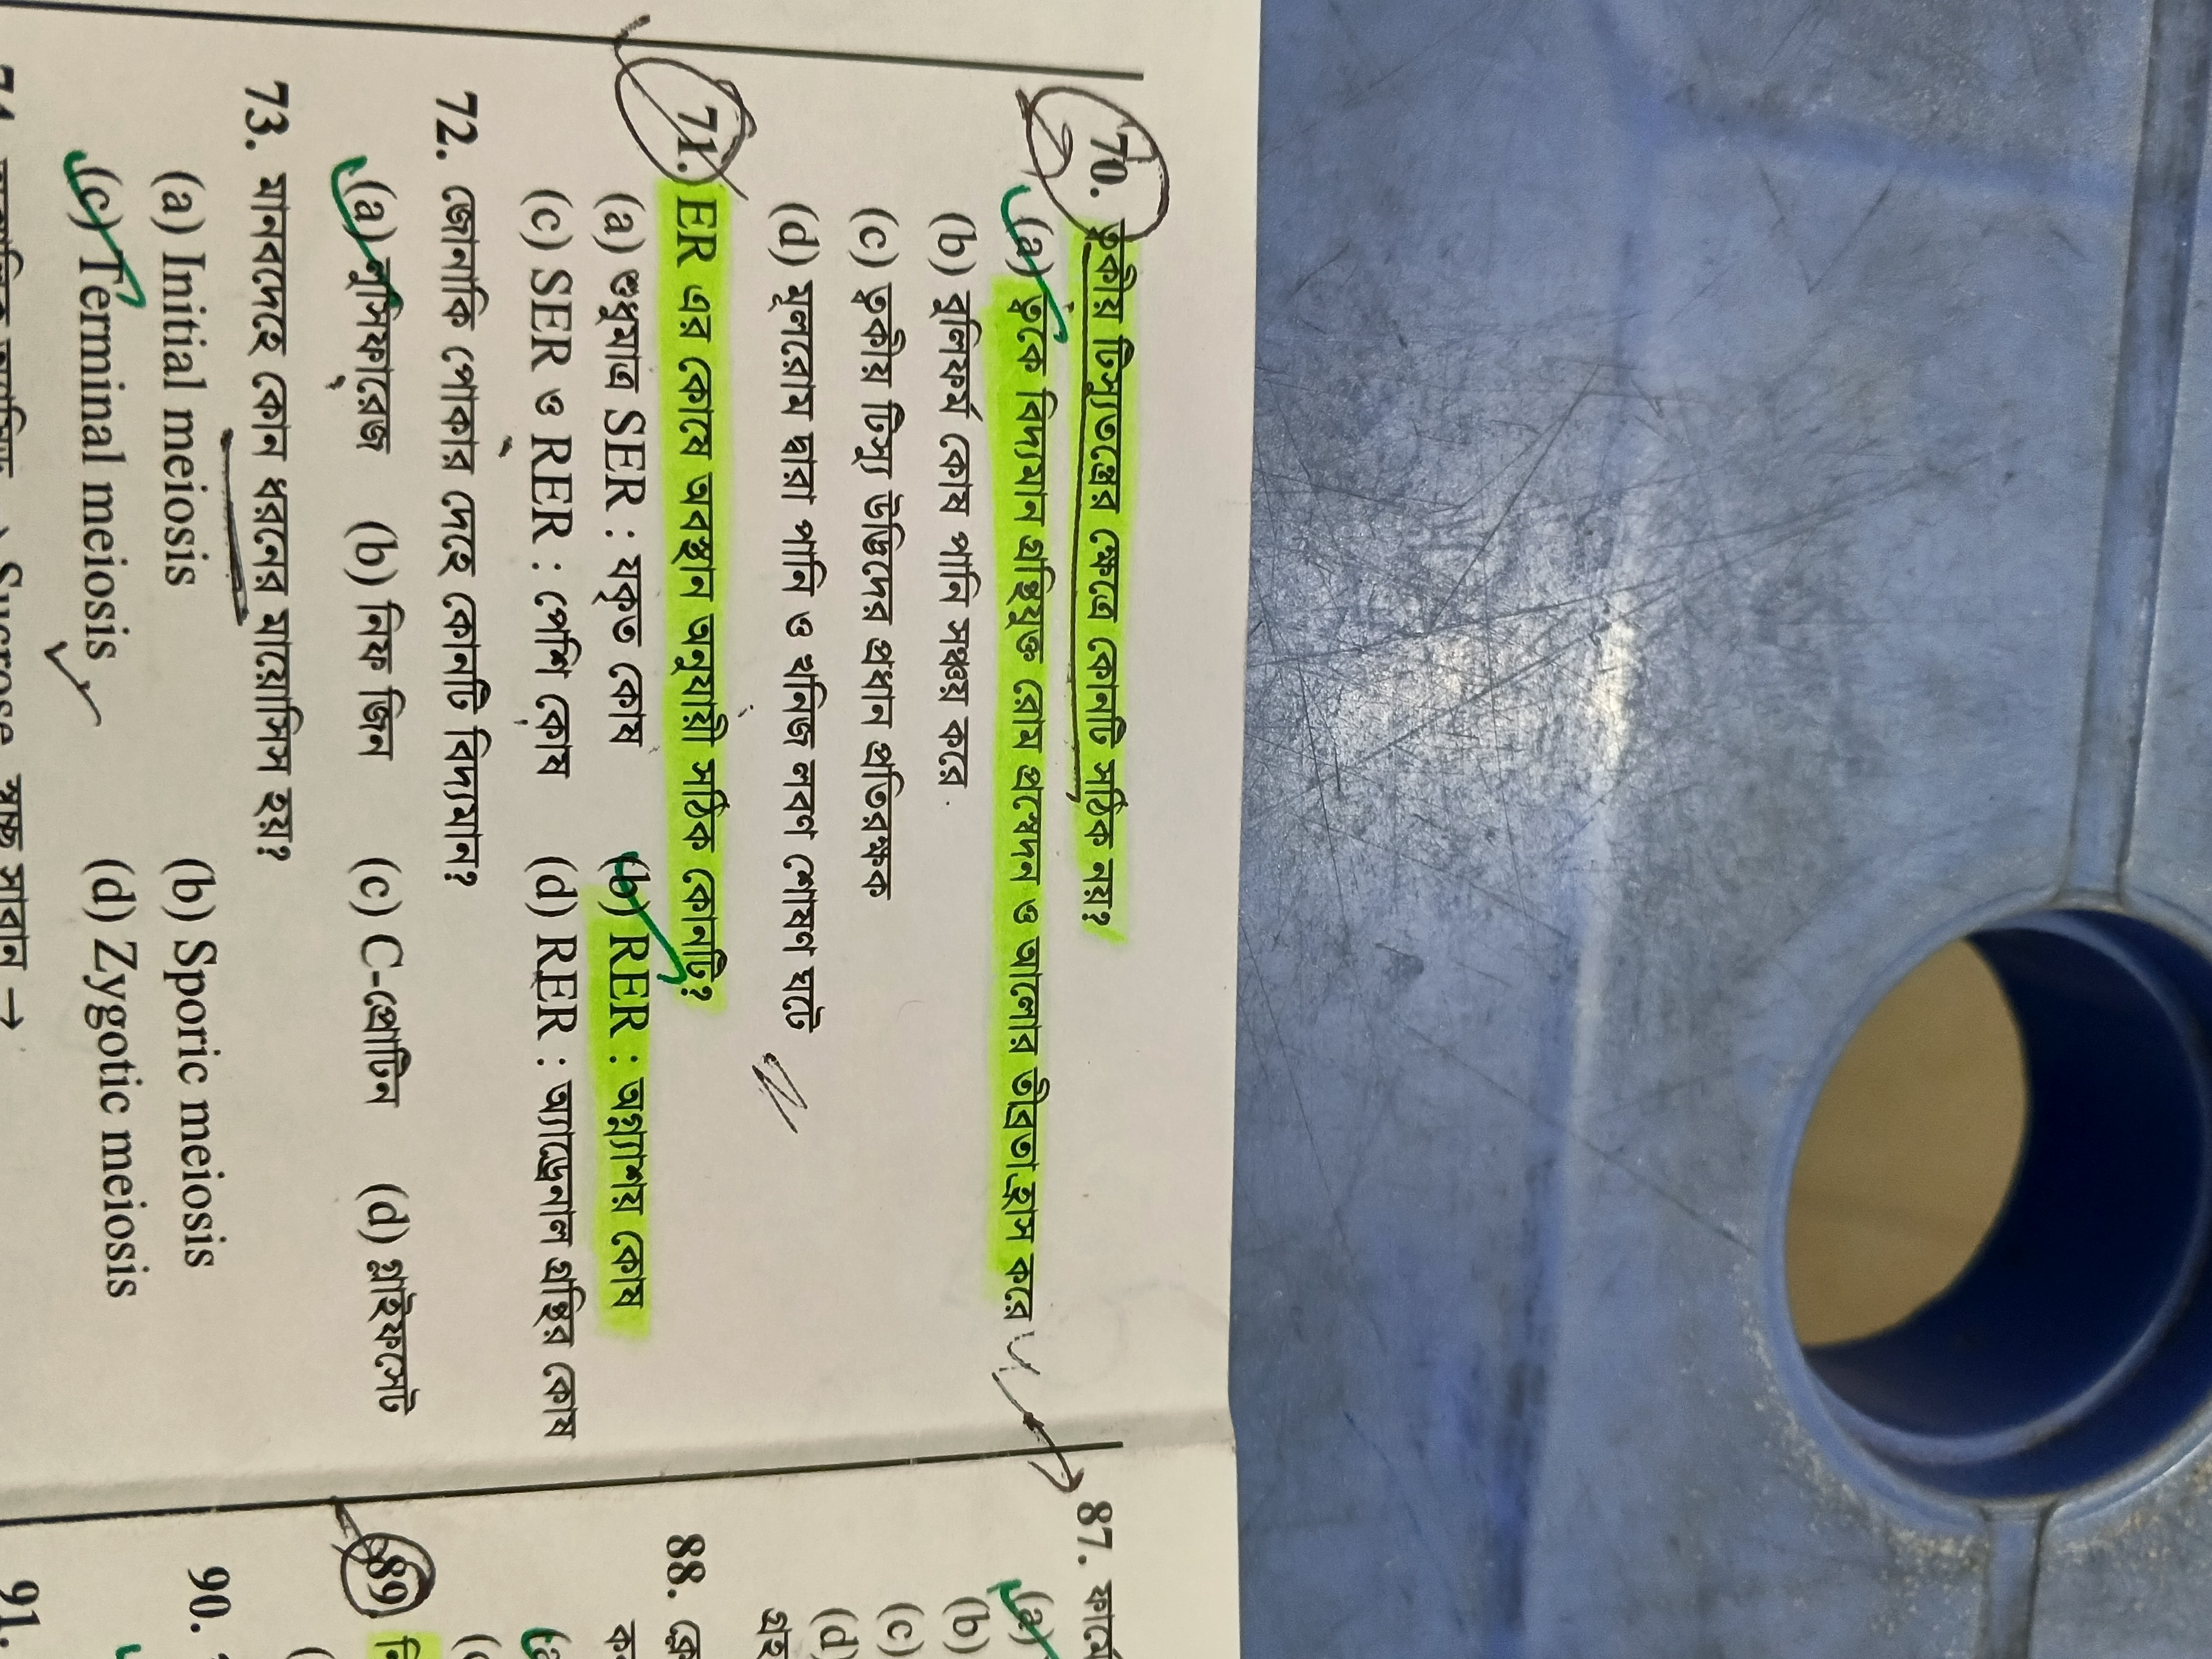 70. ত্বকীয় টিস্যুতন্ত্রের ক্ষেত্রে কোনটি সঠিক নয়?
(a) ত্বকে বিদ্যমান গ্রন্থিযুক্ত রোম প্রস্বেদন ও আলোর তীব্রতা হ্রাস করে
(b) বুলিফর্ম কোষ পানি সঞ্চয় করে
(c) ত্বকীয় টিস্যু উদ্ভিদের প্রধান প্রতিরক্ষক
(d) মূলরোম দ্বারা পানি ও খনিজ লবণ শোষণ ঘটে
71. ER এর কোষে অবস্থান অনুযায়ী সঠিক কোনটি?
(a) শুধুমাত্র SER : যকৃত কোষ (b) RER : অগ্ন্যাশয় কোষ
(c) SER ও RER : পেশি কোষ (d) RER : অ্যাড্রেনাল গ্রন্থির কোষ
72. জোনাকি পোকার দেহে কোনটি বিদ্যমান?
(a) লুসিফারেজ (b) নিফ জিন (c) C-প্রোটিন (d) গ্লাইফসেট
73. মানবদেহে কোন ধরনের মায়োসিস হয়?
(a) Initial meiosis (b) Sporic meiosis
(c) Terminal meiosis (d) Zygotic meiosis
Sucrose স্বচ্ছ সাবান →
87.
(a)
(b)
(c)
(d)
88.
89
90.
91.